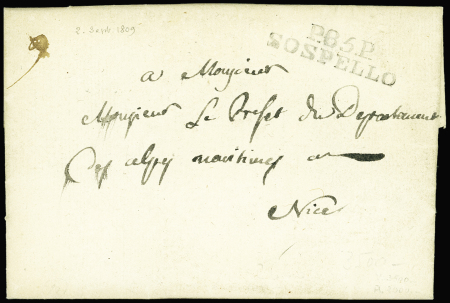 2. Sept 1809
P.85.P.
SOSPELLO
a Monsieur
Monsieur Le Prefet du Departement
des alpes maritimes a
Nice